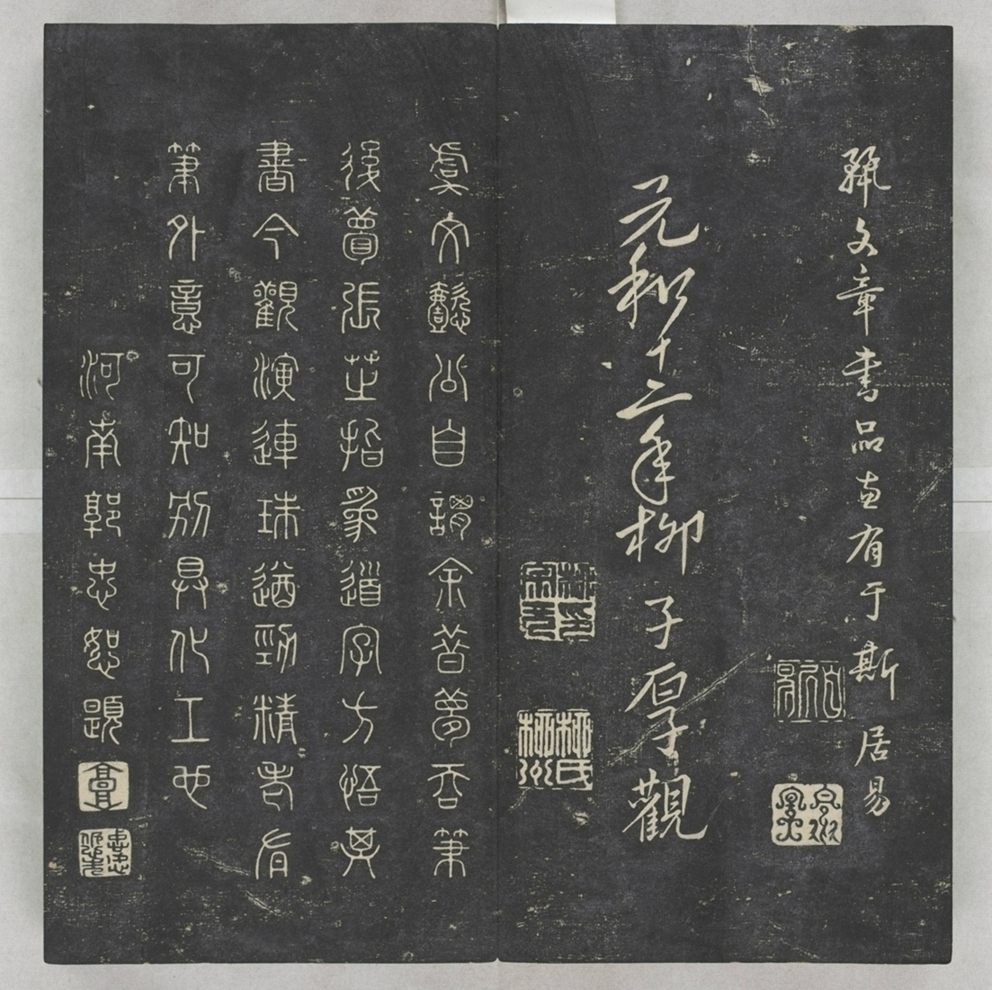 文章書品有于斯 居易
元和十二年柳子厚觀
虞文懿公自謂余昔夢吞筆
後夢張芝指象道字方悟其
書今觀演連珠遒勁精老有
筆外意可知別具化工也
河南郭忠恕題